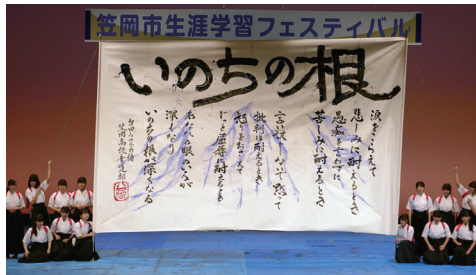 笠岡市生涯学習フェスティバル
いのちの根
涙をこらえて
悲しみに耐えるとき
愚痴をいわずに
苦しみに耐えるとき
言い訳をしないで黙って
批判に耐えるとき
怒りをおさえて
じっと屈辱に耐えるとき
あなたの眼のいろが
深くなり
いのちの根が深くなる
相田みつを 詩
笠岡高校書道部